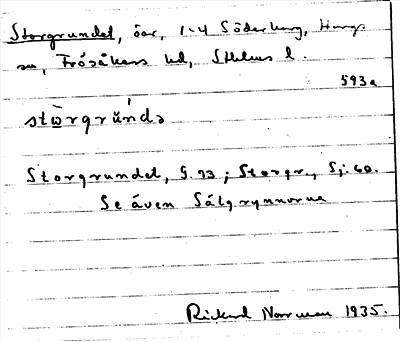 Storgrundet, öar, 1-4 Söderberg, Hargs
sn, Frösåkers hd, Sthlms l.
593a
stòrgrúndə
Storgrundet, G. 73; Storgr., Sj. 60.
Se även Sälgrynnorna
Rickard Norrman 1935.